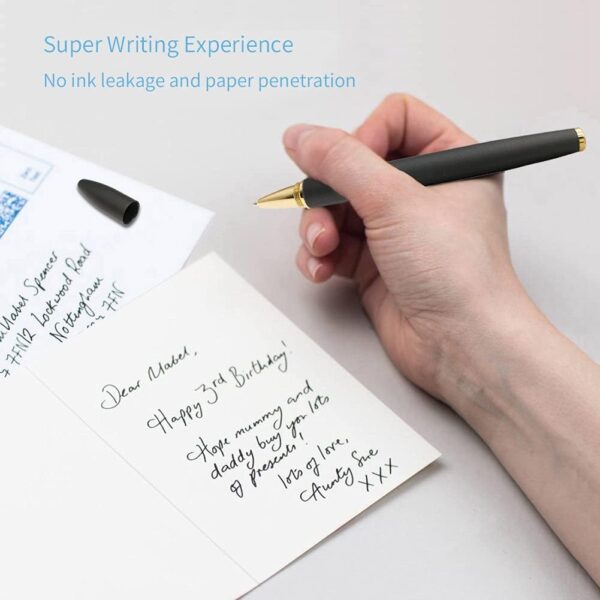 Super Writing Experience
No ink leakage and paper penetration
Mabel Spencer
Lockwood Road
Nottingham
7FN
Dear Mabel,
Happy 3rd Birthday!
Hope mummy and
daddy buy you lots
of presents!
lots of love,
Aunty Sue
xxx